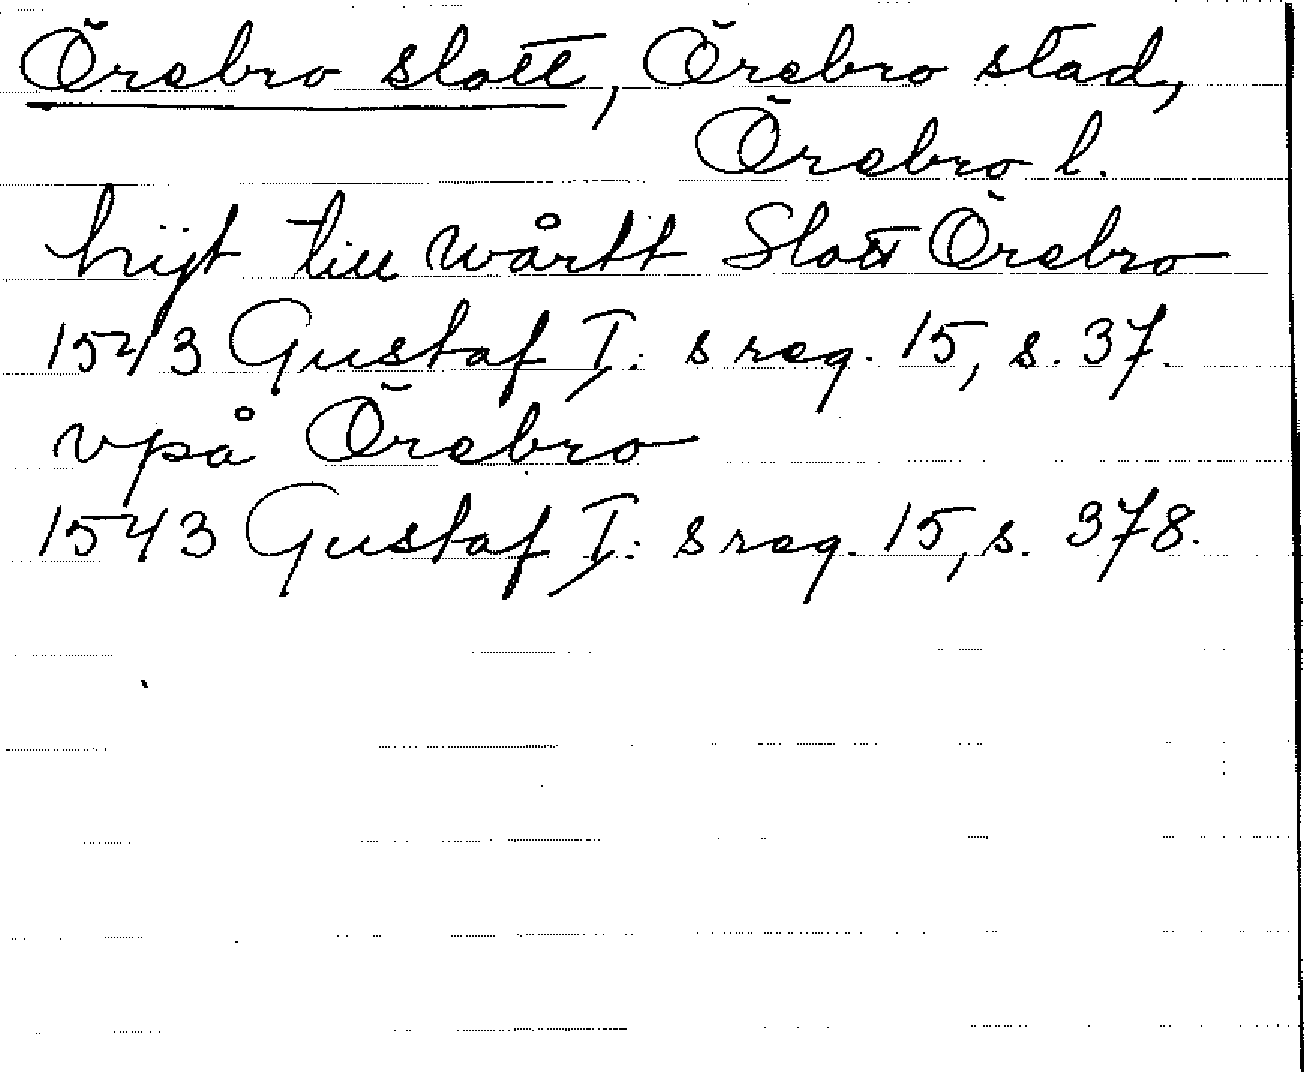 Örebro slott, Örebro stad,
Örebro l.
hijt till wårtt Slott Örebro
1543 Gustaf I:s reg. 15, s. 37.
vpå Örebro
1543 Gustaf I:s reg. 15, s. 378.